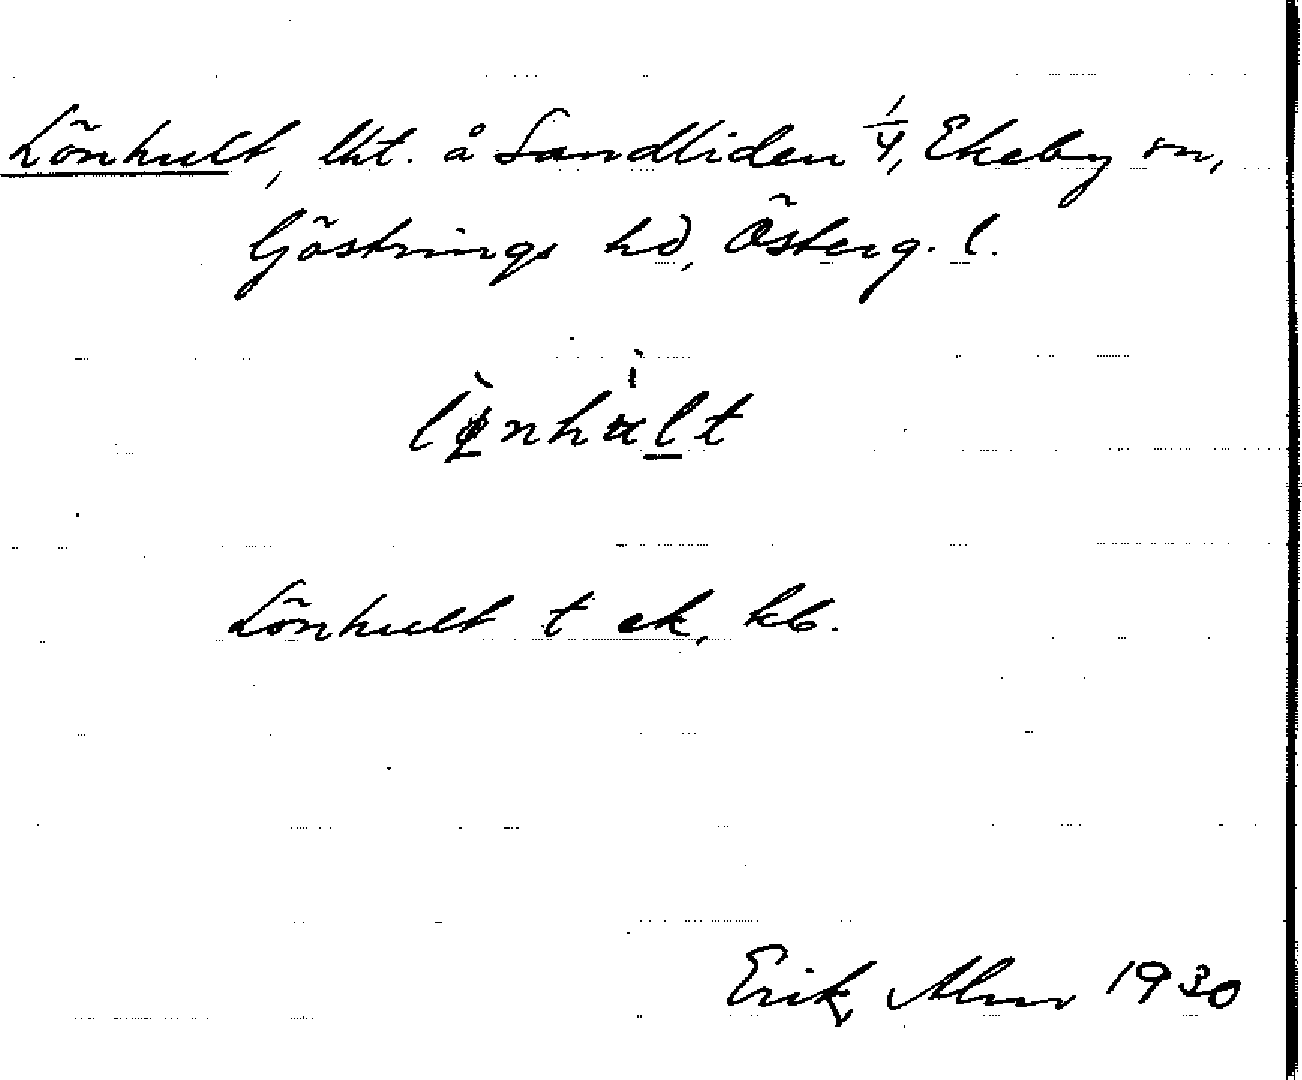 Lönhult, lht. å Sandliden 1/4, Ekeby sn,
Göstrings hd, Österg. l.
Lönhult t ek, kb.
Erik Abrn 1930